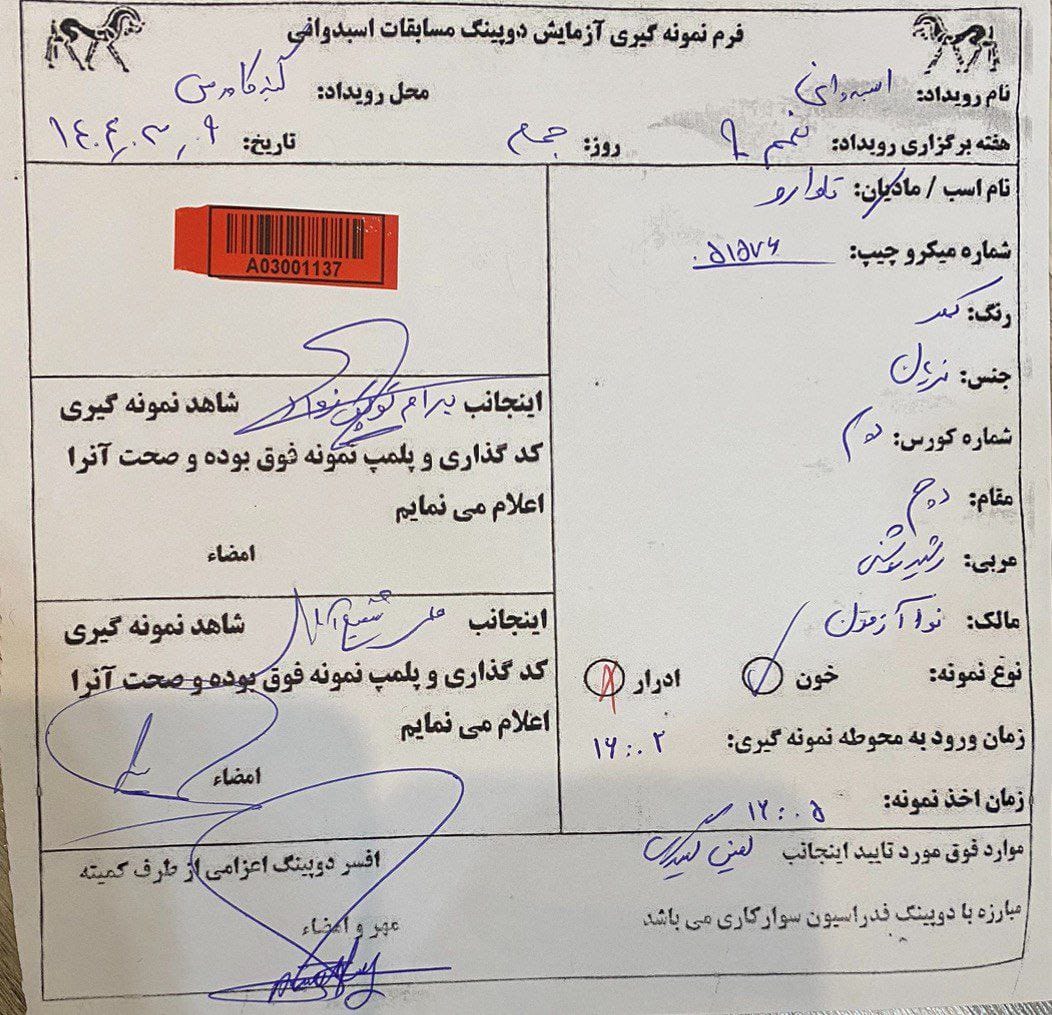 فرم نمونه گیری آزمایش دوپینگ مسابقات اسبدوانی
نام رویداد: اسبدوانی
محل رویداد: گنبد کاووس
هفته برگزاری رویداد: نهم ۹
روز: جمعه
تاریخ: ۱۴۰۴،۰۳،۰۹
نام اسب / مادیان:
شماره میکرو چیپ: ۰۵۱۵۷۶
رنگ: کهر
جنس: نریان
شماره کورس: دوم
مقام:
مربی:
مالک:
نوع نمونه: خون ادرار
زمان ورود به محوطه نمونه گیری: ۱۶:۰۲
زمان اخذ نمونه: ۱۶:۰۵
A03001137
اینجانب شاهد نمونه گیری
کد گذاری و پلمپ نمونه فوق بوده و صحت آنرا
اعلام می نمایم
امضاء
اینجانب علی شاهد نمونه گیری
کد گذاری و پلمپ نمونه فوق بوده و صحت آنرا
اعلام می نمایم
امضاء
موارد فوق مورد تایید اینجانب افسر دوپینگ اعزامی از طرف کمیته
مبارزه با دوپینگ فدراسیون سوارکاری می باشد
مهر و امضاء